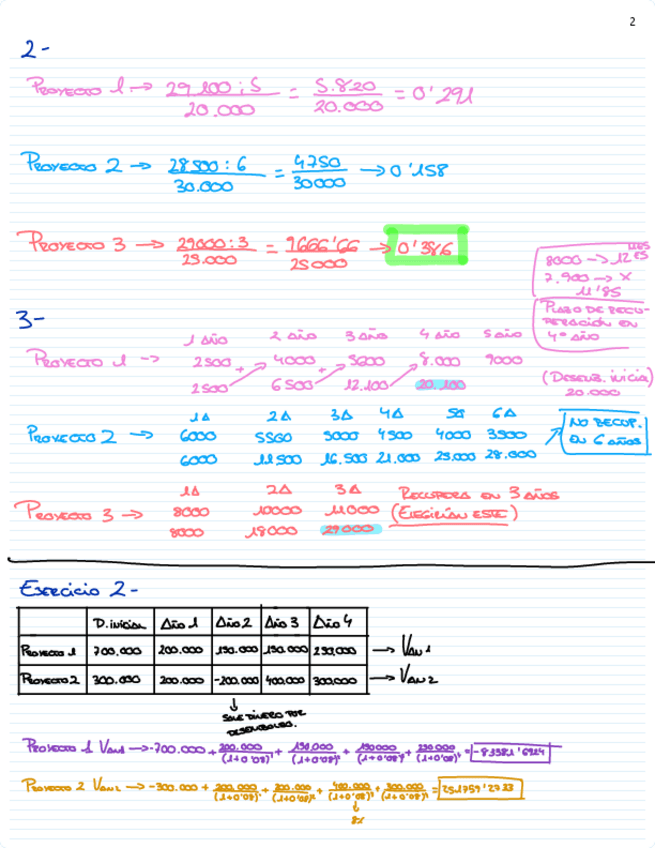 2
2-
Proyecto 1 → 29.100:5 / 20.000 = 5.820 / 20.000 = 0'291
Proyecto 2 → 28500:6 / 30.000 = 4750 / 30000 → 0'158
Proyecto 3 → 29000:3 / 25.000 = 9666'66 / 25000 → 0'386
8000 → 12 meses
7.900 → x
11'85
3-
Plazo de recuperación en 4º año
1 año 2 año 3 año 4 año 5 año
Proyecto 1 → 2500 4000 5600 8.000 9000
2500 6500 12.100 20.100
(Desemb. inicial)
20.000
1A 2A 3A 4A 5A 6A
Proyecto 2 → 6000 5500 5000 4500 4000 3500
6000 11500 16.500 21.000 25.000 28.000
No recup. en 6 años
1A 2A 3A
Proyecto 3 → 8000 10000 11000
8000 18000 29000
Recupera en 3 años
(Elegirían este)
Ejercicio 2-
D. inicial Año 1 Año 2 Año 3 Año 4
Proyecto 1 700.000 200.000 150.000 150.000 250.000 → Van 1
Proyecto 2 300.000 200.000 -200.000 400.000 300.000 → Van 2
Sale dinero por
desembolso.
Proyecto 1 Van1 → -700.000 +
Proyecto 2 Van2 → -300.000 +